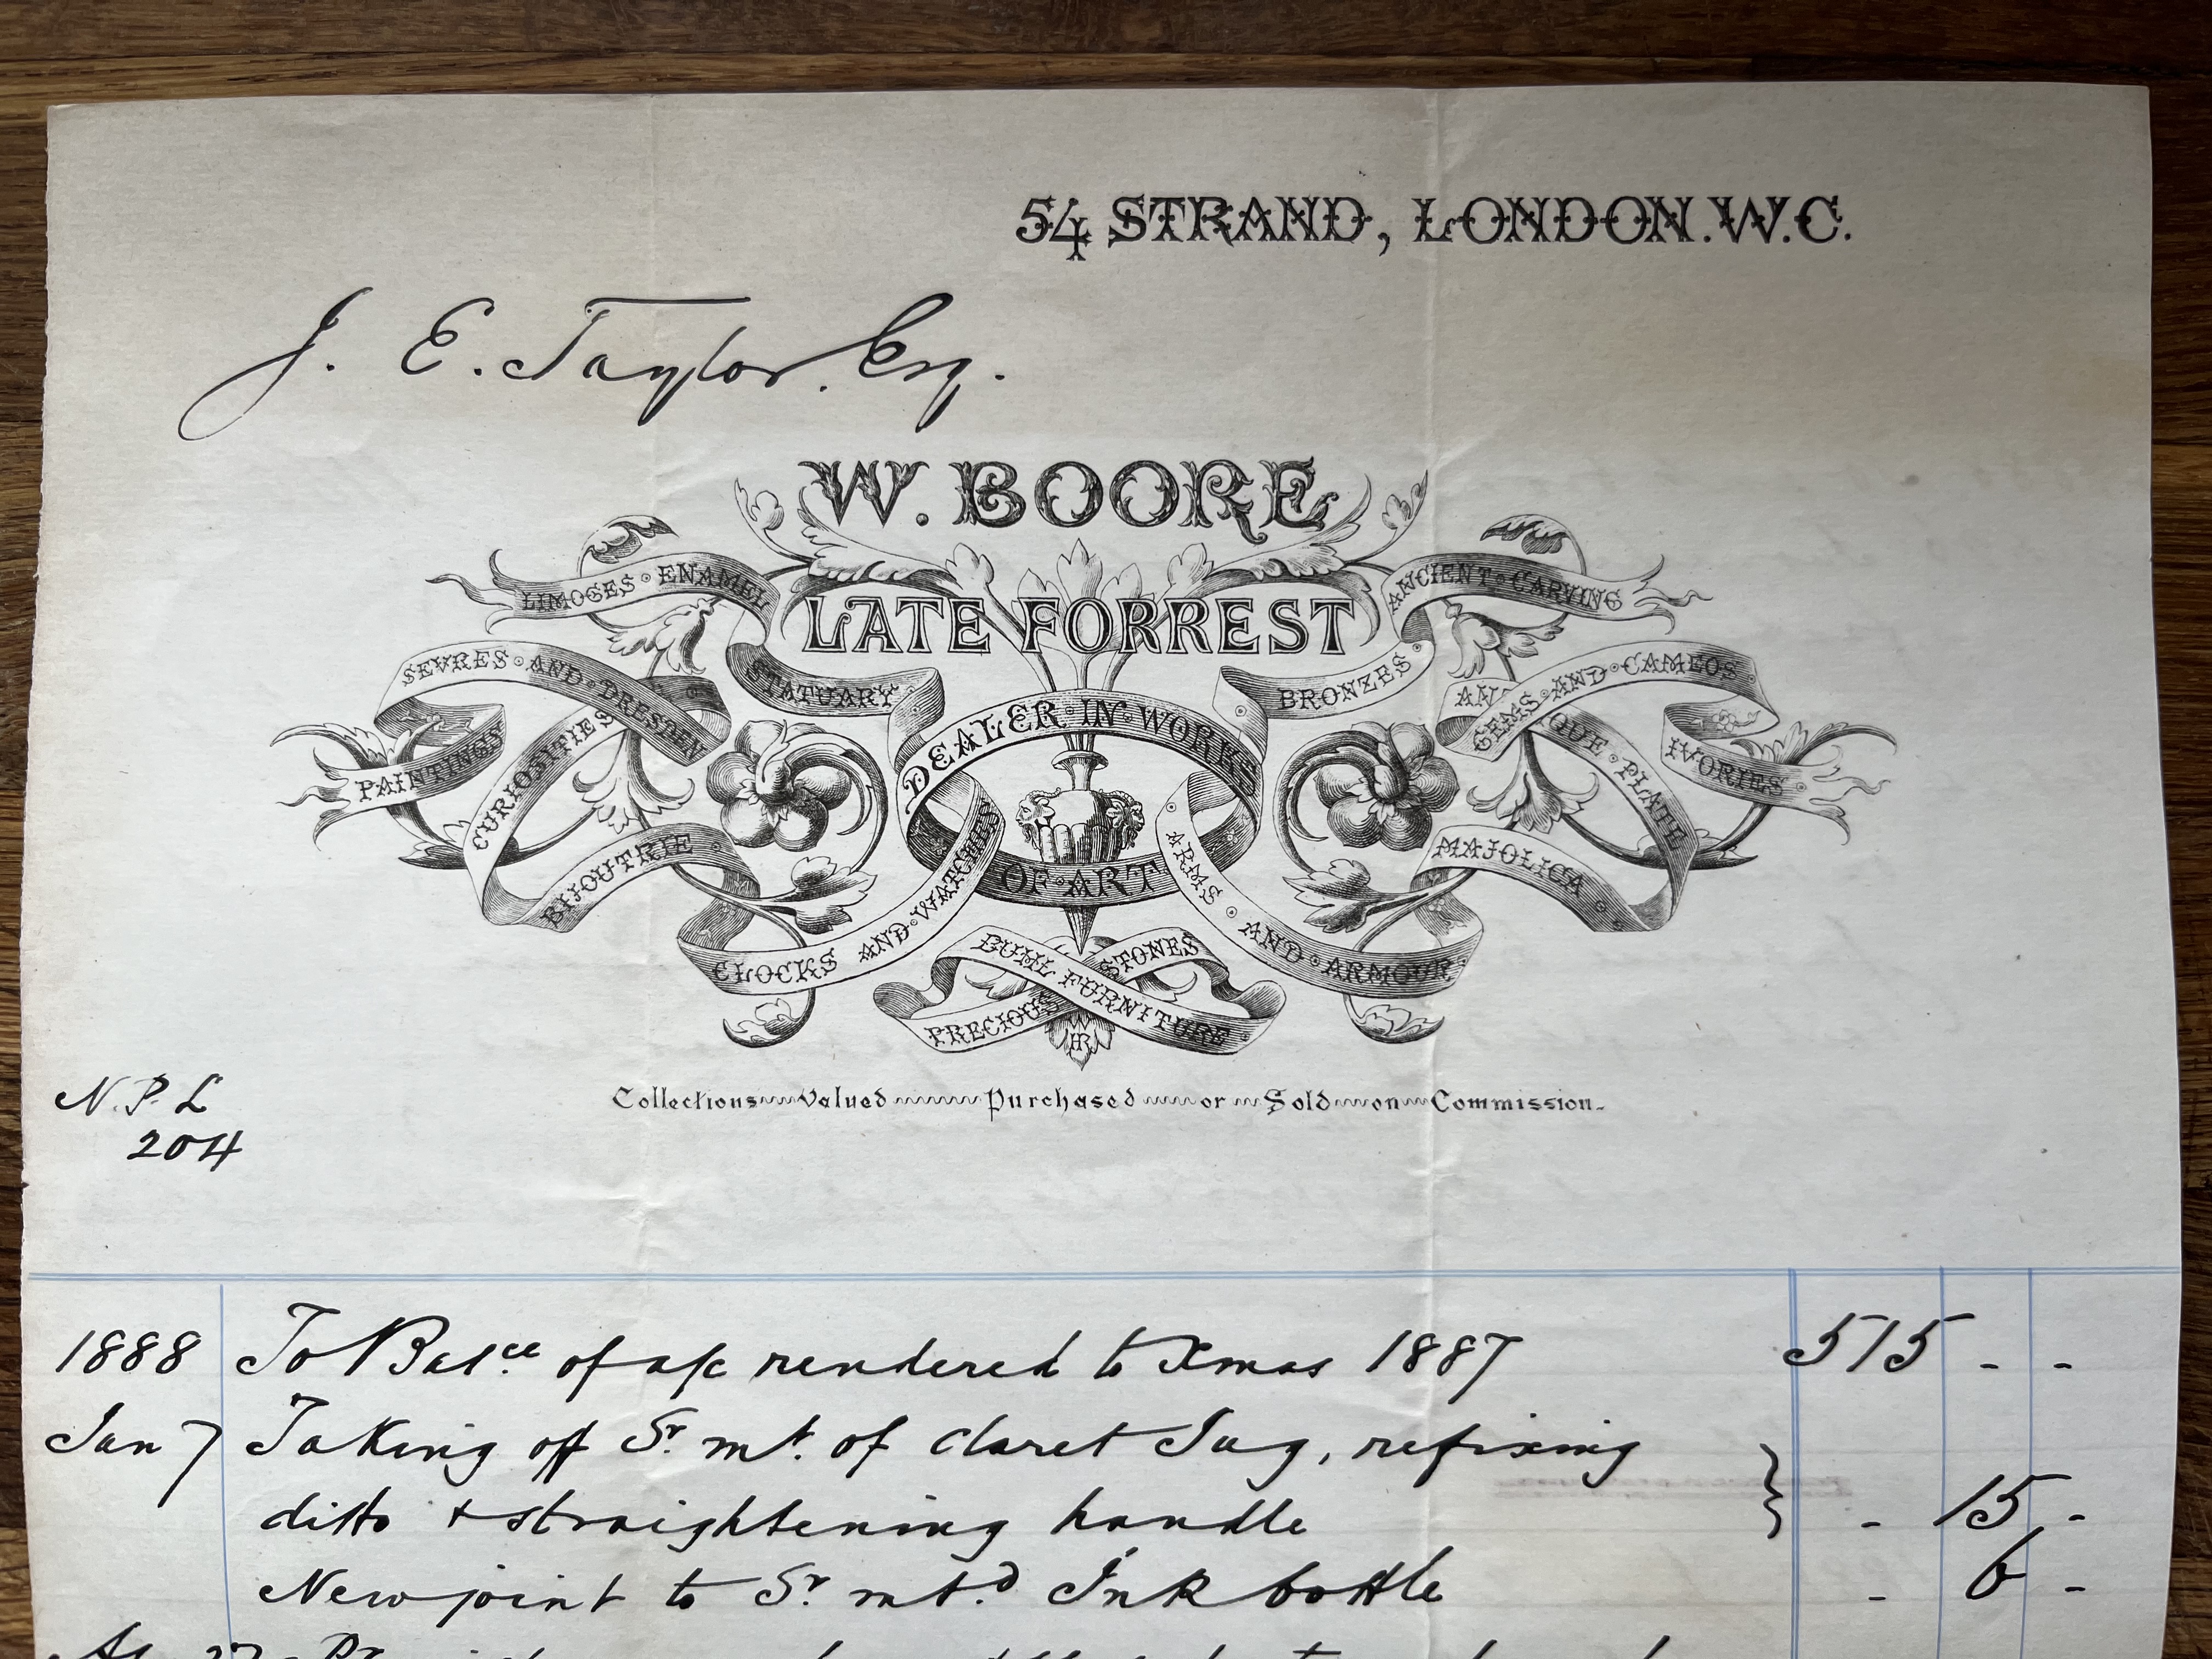 54 STRAND, LONDON. W.C.
J. E. Taylor. Esq.
W. BOORE
LATE FORREST
LIMOGES ENAMEL
STATUARY
SEVRES AND DRESDEN
PAINTINGS
CURIOSITIES
BIJOUTRIE
CLOCKS AND WATCHES
DEALER IN WORKS
OF ART
ANCIENT CARVING
BRONZES
GEMS AND CAMEOS
IVORIES
ANTIQUE PLATE
MAJOLICA
ARMS AND ARMOUR
BUHL FURNITURE
PRECIOUS STONES
Collections Valued Purchased or Sold on Commission.
N. P. L
204
1888 To Balce of a/c rendered to Xmas 1887 515 - -
Jan 7 Taking off Sr. mt. of Claret Jug, refixing
ditto + straightening handle - 15 -
New joint to Sr. mtd. Ink bottle - 6 -